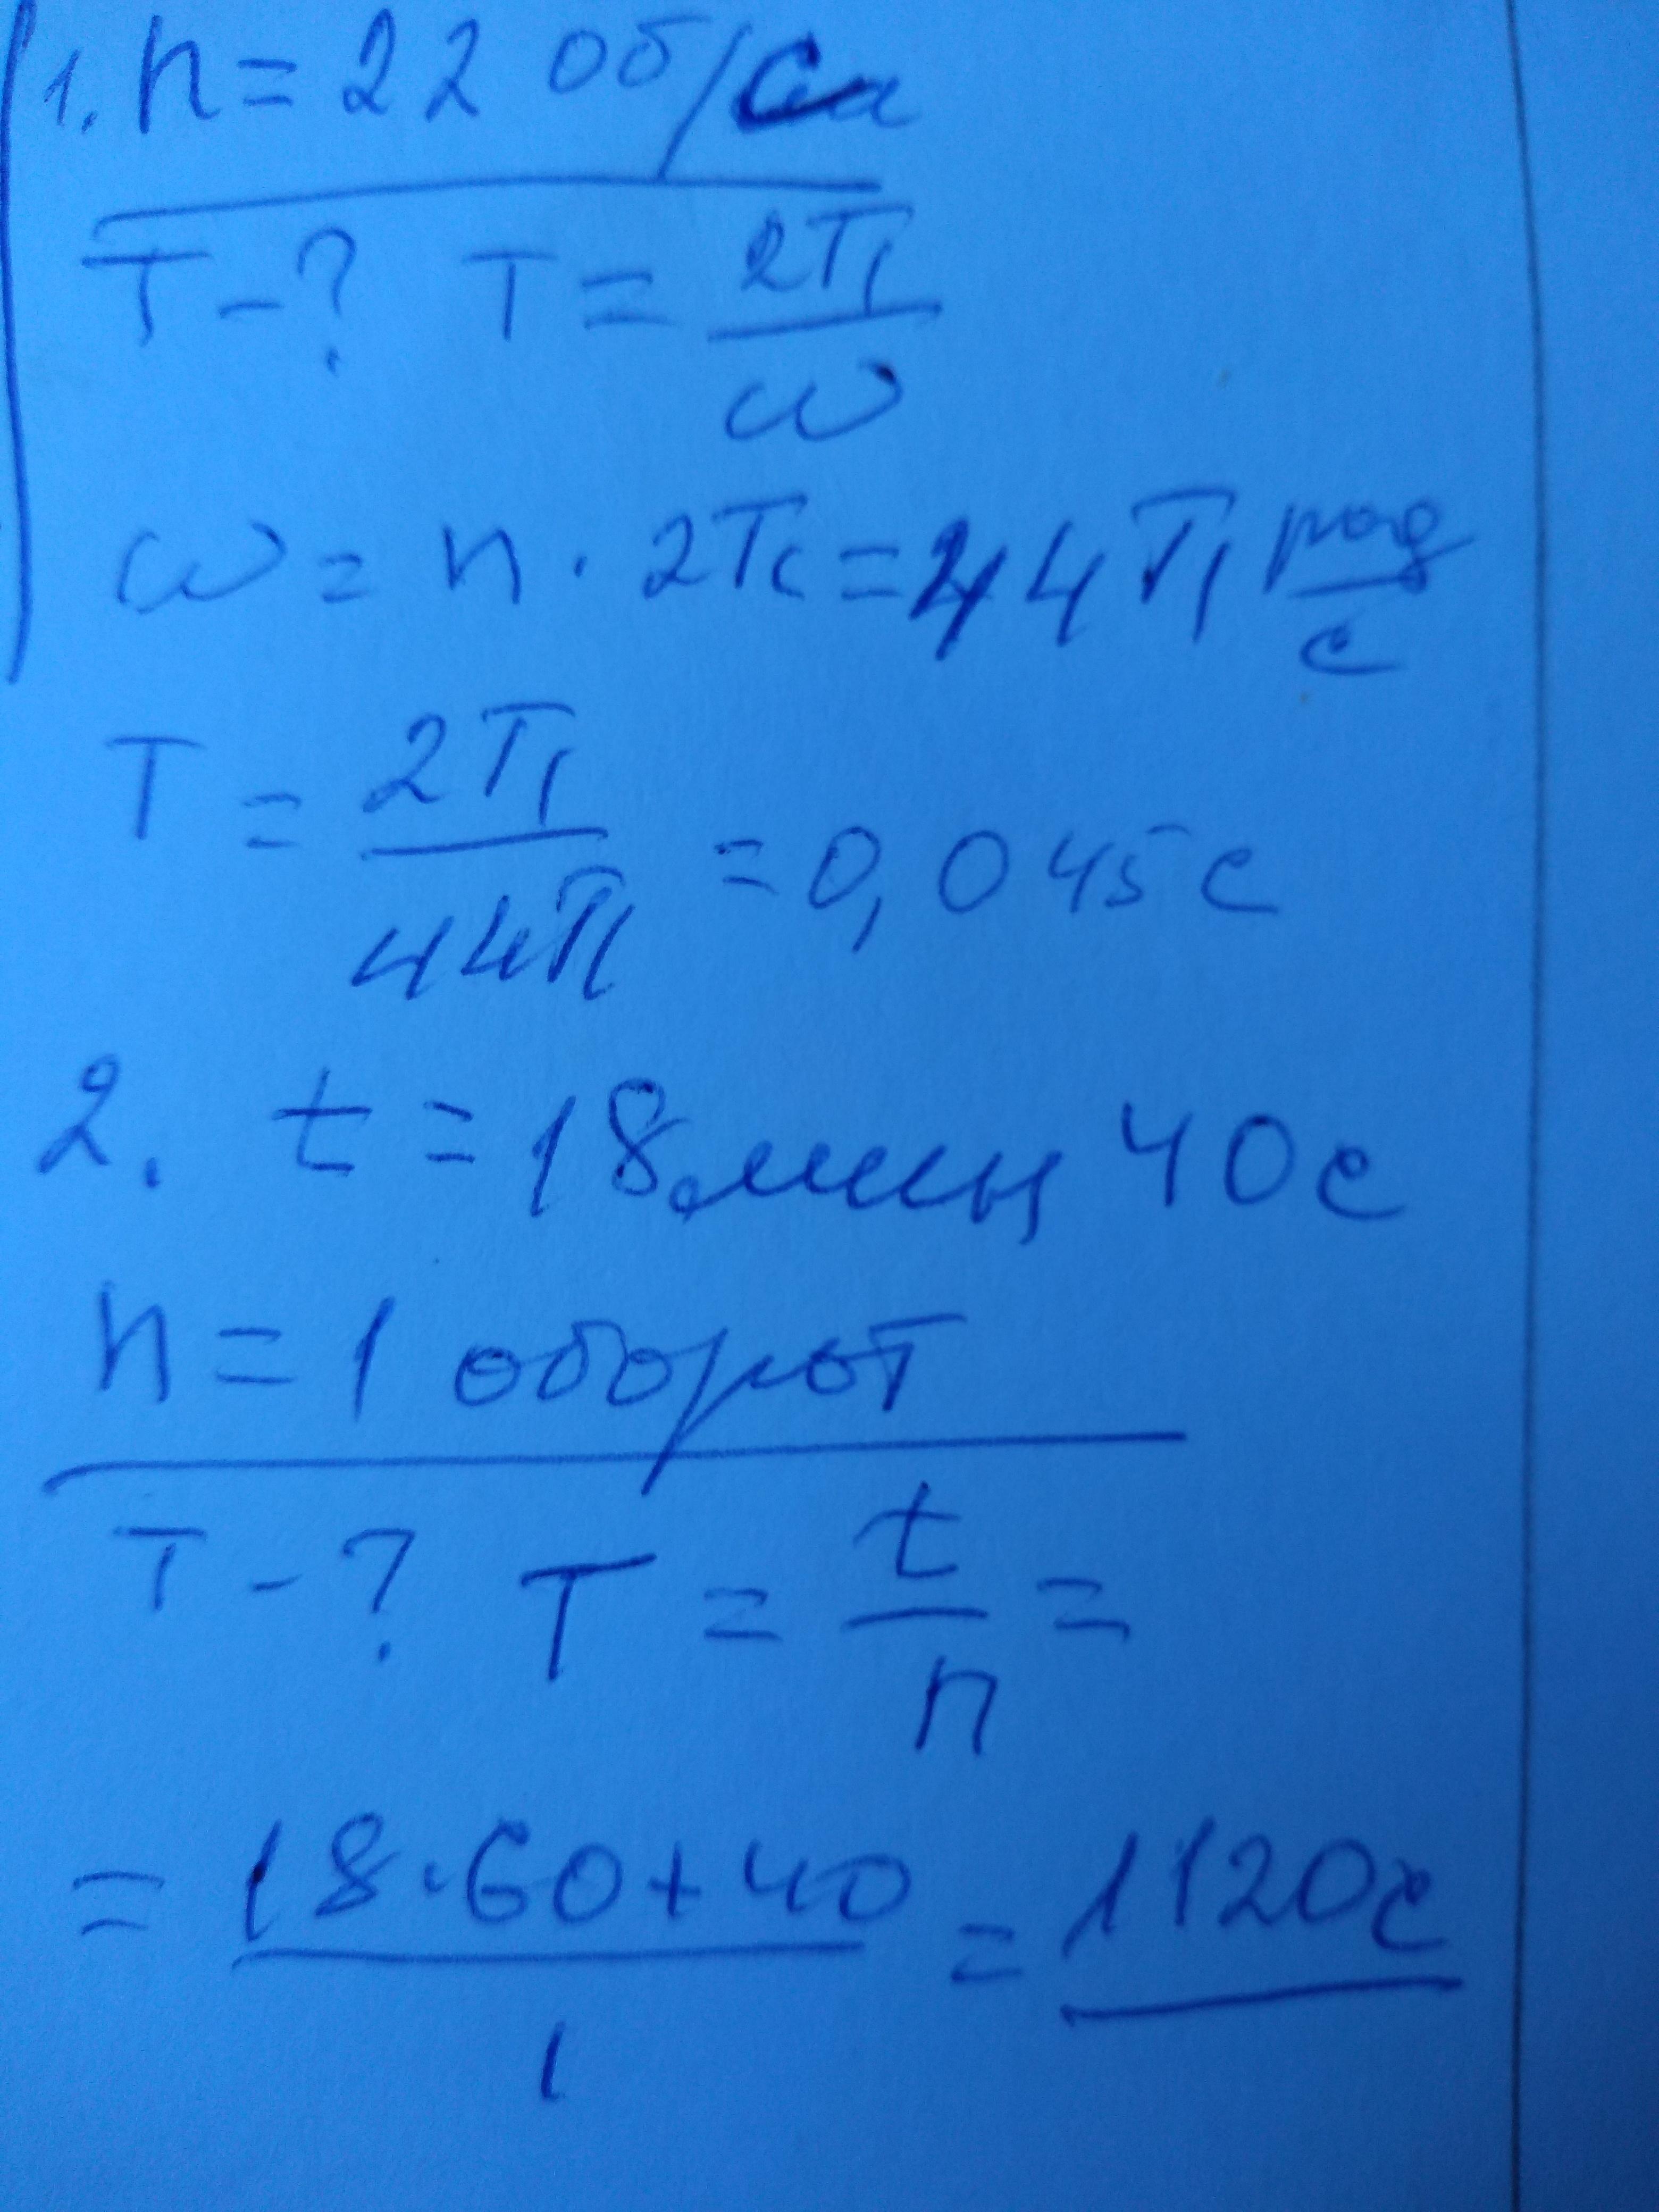 1. n = 22 об/с
T - ? T = 2π/ω
ω = n · 2π = 44π рад/с
T = 2π/44π = 0,045 с
2. t = 18 мин 40 с
n = 1 оборот
T - ? T = t/n =
= 18·60+40/1 = 1120 с